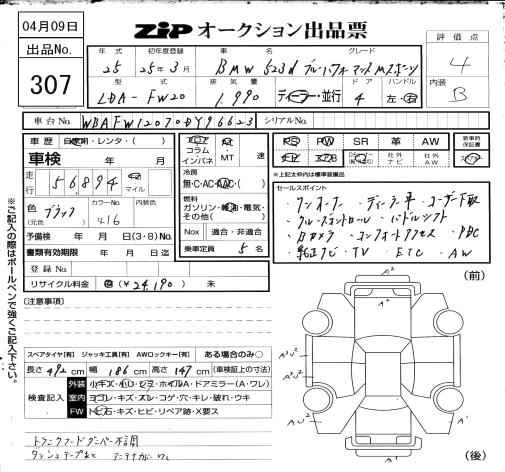 04月09日
ZiP オークション出品票
出品No.
307
年式 初年度登録 車名 グレード
25 25年3月 BMW 523d ブルーパフォーマンスMスポーツ
型式 排気量 ドア ハンドル
LDA-FW20 1,990 ディーラー・並行 4 左・右
評価点
4
内装
B
車台No. WBAFW12070DY96623 シリアルNo.
車歴 自家用・レンタ・( )
車検 年 月
走行 56,894 km マイル
色 (元色) ブラック カラーNo. 416
予備検 年 月 日(3・8)No.
書類有効期限 年 月 日迄
登録No.
リサイクル料金 (¥24,190) 未
コラム インパネ MT 速
冷房
無・C・AC・AAC・( )
燃料
ガソリン・軽油・電気・その他( )
Nox 適合・非適合
乗車定員 5名
PS PW SR 革 AW
社外ナビ 社外AW
新車時保証書
※上記太枠内は標準装備品
セールスポイント
・ワンオーナー ・ディーラー車 ・コーナー
・クルーズコントロール ・パドルシフト
・Bカメラ ・コンフォートアクセス ・PDC
・純正ナビ ・TV ・ETC ・AW
※ご記入の際はボールペンで強くご記入下さい。
[注意事項]
(前)
A²
A³U²
A³U²
AU²
A²
(後)
スペアタイヤ[有] ジャッキ工具[有] AWロックキー[有] ある場合のみ○
長さ 492 cm 幅 186 cm 高さ 147 cm (車検証上の寸法)
検査記入
外装 小キズ・小U・ヒヲ・ホイルA・ドアミラー(A・ワレ)
室内 ヨゴレ・キズ・スレ・コゲ・穴・キレ・破れ・ウキ
FW トビ石・キズ・ヒビ・リペア跡・X要ス
トランクフードダンパー不調
ダッシュテープあと アンテナカバー